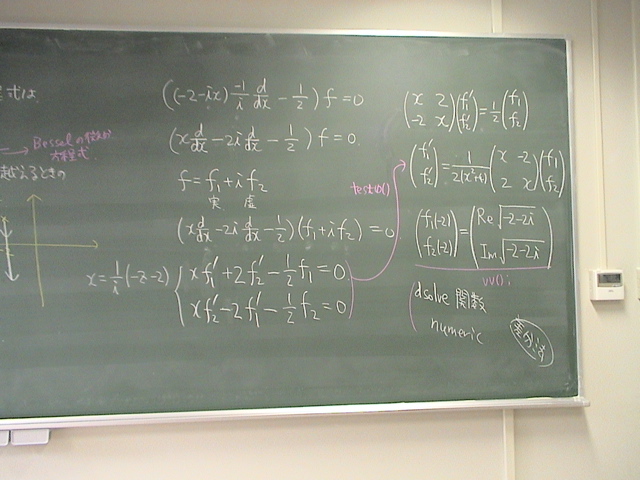 式は
→ Besselの微分
方程式
越えるときの
((-2-ix) -1/i d/dx - 1/2) f = 0
(x d/dx - 2i d/dx - 1/2) f = 0.
f = f₁ + i f₂
実 虚
(x d/dx - 2i d/dx - 1/2)(f₁ + i f₂) = 0
x = 1/i (-z-2) { x f₁' + 2 f₂' - 1/2 f₁ = 0.
x f₂' - 2 f₁' - 1/2 f₂ = 0
(x 2; -2 x)(f₁'; f₂') = 1/2 (f₁; f₂)
(f₁'; f₂') = 1/(2(x²+4)) (x -2; 2 x)(f₁; f₂)
(f₁(-2); f₂(-2)) = (Re √(-2-2i); Im √(-2-2i))
dsolve 関数
numeric